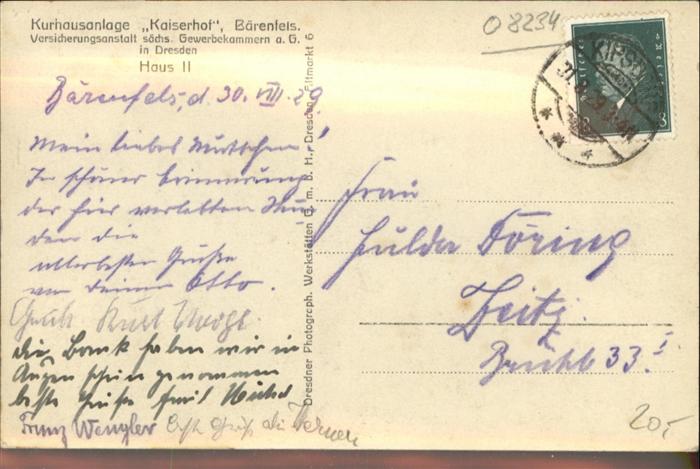 Kurhausanlage „Kaiserhof", Bärenfels.
Versicherungsanstalt sächs. Gewerbekammern a. G.
in Dresden
Haus II
Bärenfels, d. 30. VIII. 29
Mein liebes Muttchen!
In schöner Erinnerung
der hier verlebten Stun-
den die
allerbesten Grüße
von Deinem Otto.
Gruß Kurt
die Bank haben wir in
Augenschein genommen
beste Grüße Emil
Franz Wengler
Dresdner Photograph. Werkstätten G. m. b. H., Dresden, Altmarkt 6
O 8234
8
Frau
Hulda Döring
Zeitz.
33 I
20,-